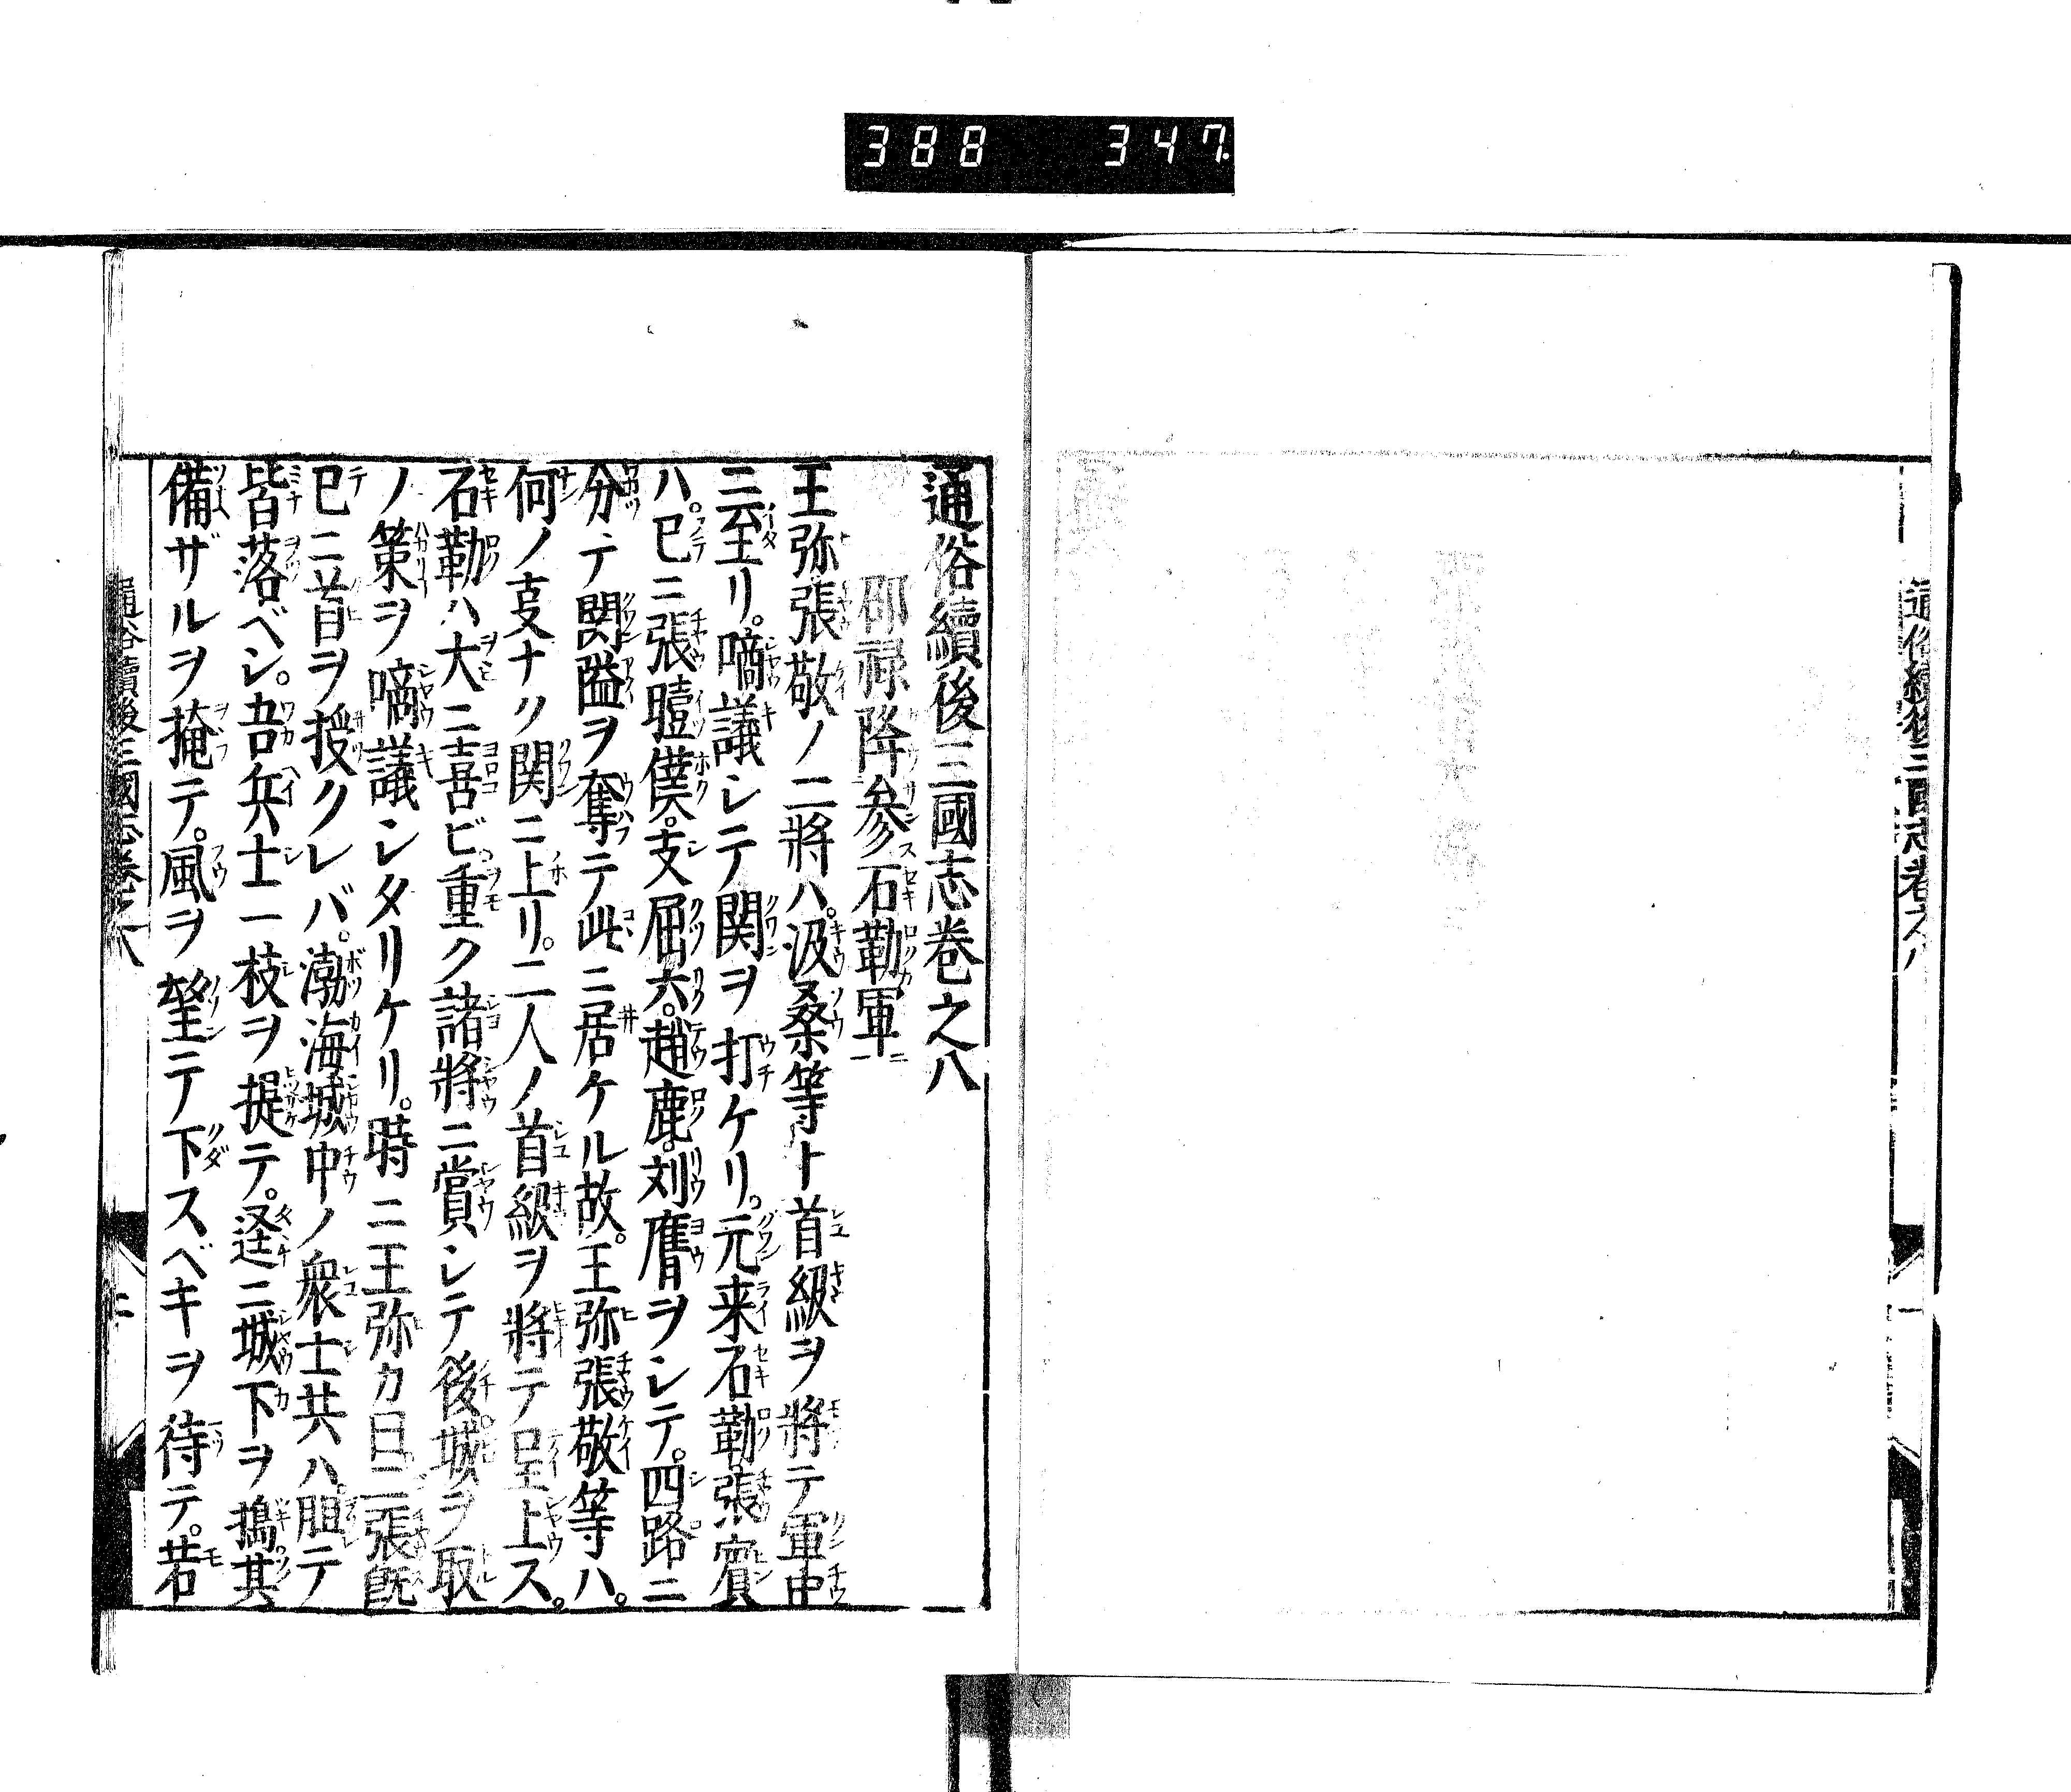 388 347
通俗續後三國志卷之八
通俗續後三國志巻之八
邵禄降参石勒軍
王弥張敬ノ二將ハ。汲桑等ト首級ヲ將テ軍中
ニ至リ。啇議シテ関ヲ打ケリ。元来石勒。張賓
ハ。已ニ張曀僕。支屈六。趙鹿。刘膺ヲシテ。四路ニ
分テ関隘ヲ奪テ此ニ居ケル故。王弥張敬等ハ。
何ノ支ナク関ニ上リ。二人ノ首級ヲ將テ呈上ス。
石勒ハ大ニ喜ビ。重ク諸將ニ賞シテ後。城ヲ取
ノ策ヲ啇議シタリケリ。時ニ王弥カ曰二張既
已ニ首ヲ授クレバ。渤海城中ノ衆士共ハ胆テ
皆落ベシ。吾兵士一枝ヲ提テ。逕ニ城下ヲ搗其
備ザルヲ掩テ。風ヲ望テ下スベキヲ待テ。若
通俗續後三國志卷之八